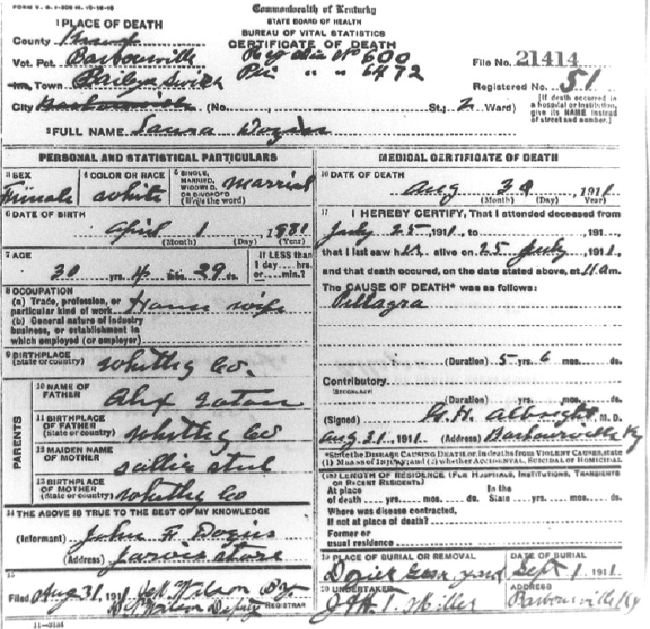 FORM V. S. 1-50M 10-18-10
Commonwealth of Kentucky
STATE BOARD OF HEALTH
BUREAU OF VITAL STATISTICS
CERTIFICATE OF DEATH
1 PLACE OF DEATH
County
Vot. Pct. Barbourville Reg Dis No 600
Inc. Town Switch Pri " " 6472
File No. 21414
Registered No. 51
City Barbourville (No. St.; 2 Ward)
[If death occurred in a hospital or institution, give its NAME instead of street and number.]
2 FULL NAME Laura
PERSONAL AND STATISTICAL PARTICULARS
3 SEX Female
4 COLOR OR RACE white
5 SINGLE, MARRIED, WIDOWED, OR DIVORCED (Write the word) Married
6 DATE OF BIRTH April 1 1881
(Month) (Day) (Year)
7 AGE 30 yrs. 4 mos. 29 ds.
If LESS than 1 day ... hrs. or ... min.?
8 OCCUPATION
(a) Trade, profession, or particular kind of work House wife
(b) General nature of industry business, or establishment in which employed (or employer)
9 BIRTHPLACE (State or country) Whitley Co.
PARENTS
10 NAME OF FATHER Alex
11 BIRTHPLACE OF FATHER (State or country) Whitley Co
12 MAIDEN NAME OF MOTHER Sallie
13 BIRTHPLACE OF MOTHER (State or country) Whitley Co
14 THE ABOVE IS TRUE TO THE BEST OF MY KNOWLEDGE
(Informant) John F
(Address) Jarvis Store
15
Filed Aug 31, 1911 Wilson By
Wilson Deputy REGISTRAR
11-3184
MEDICAL CERTIFICATE OF DEATH
16 DATE OF DEATH Aug 30, 1911
(Month) (Day) (Year)
17 I HEREBY CERTIFY, That I attended deceased from
July 25, 1911, to 1911,
that I last saw h alive on 25 July, 1911,
and that death occurred, on the date stated above, at 11 am.
The CAUSE OF DEATH* was as follows:
Pellagra
(Duration) 5 yrs. 6 mos. ds.
Contributory
(Secondary)
(Duration) yrs. mos. ds.
(Signed) G. H. Albright, M. D.
Aug 31, 1911 (Address) Barbourville Ky
*State the DISEASE CAUSING DEATH, or, in deaths from VIOLENT CAUSES, state (1) MEANS OF INJURY; and (2) whether ACCIDENTAL, SUICIDAL or HOMICIDAL.
18 LENGTH OF RESIDENCE (FOR HOSPITALS, INSTITUTIONS, TRANSIENTS OR RECENT RESIDENTS)
At place of death yrs. mos. ds. In the State yrs. mos. ds.
Where was disease contracted,
if not at place of death?
Former or
usual residence
19 PLACE OF BURIAL OR REMOVAL yard
DATE OF BURIAL Sept 1 1911
20 UNDERTAKER Miller
ADDRESS Barbourville Ky